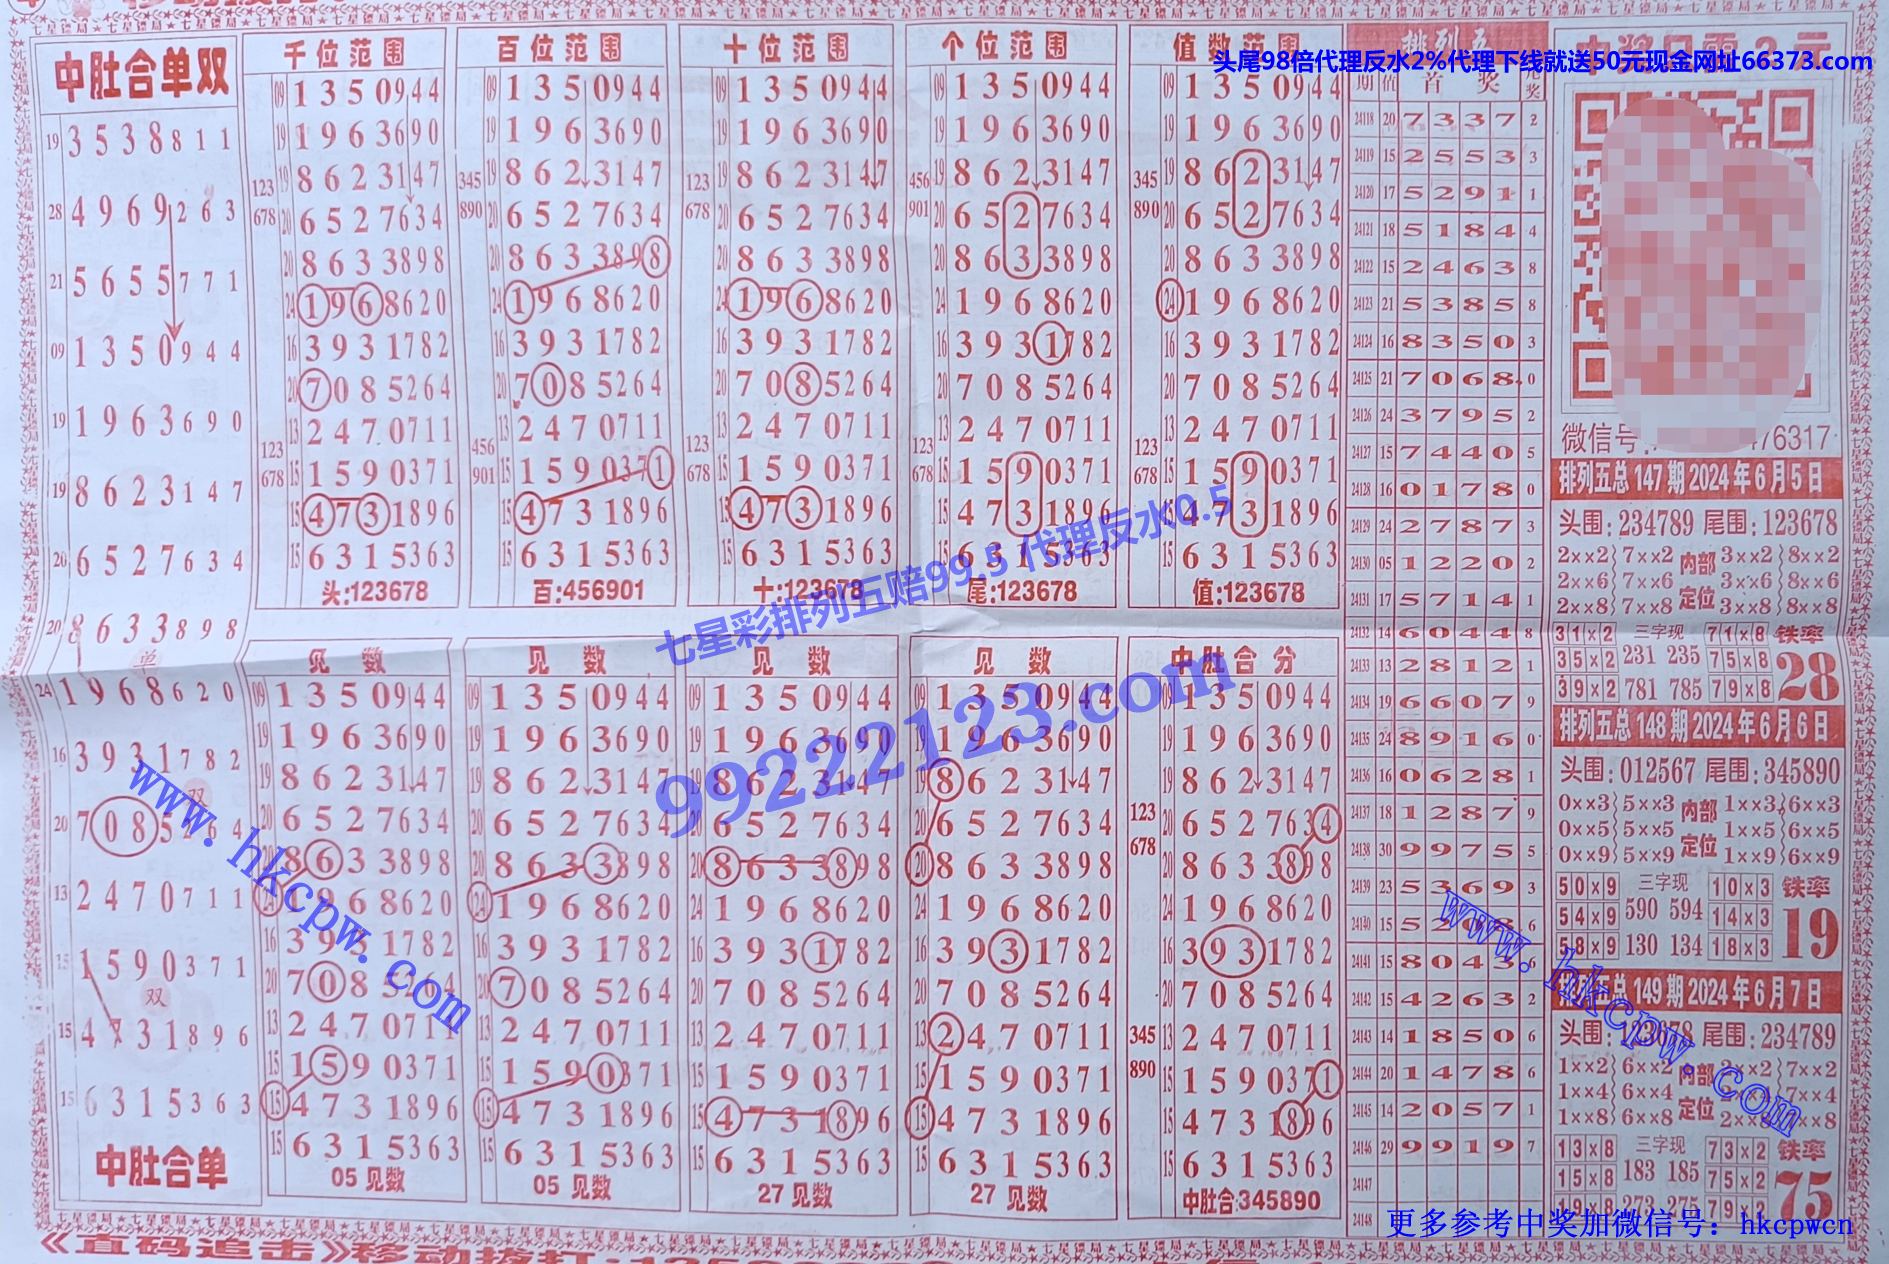 中肚合单双
19 3538811
28 4969263
21 5655771
09 1350944
19 1963690
19 8623147
20 6527634
20 8633898
单
24 1968620
16 3931782
双
20 7085264
13 2470711
15 1590371
双
15 4731896
15 6315363
中肚合单
千位范围
09 1350944
19 1963690
123 678 19 8623147
20 6527634
20 8633898
24 1968620
16 3931782
20 7085264
13 2470711
123 678 15 1590371
15 4731896
15 6315363
头:123678
百位范围
09 1350944
19 1963690
345 890 19 8623147
20 6527634
20 8633898
24 1968620
16 3931782
20 7085264
13 2470711
456 901 15 1590371
15 4731896
15 6315363
百:456901
十位范围
09 1350944
19 1963690
123 678 19 8623147
20 6527634
20 8633898
24 1968620
16 3931782
20 7085264
13 2470711
123 678 15 1590371
13 4731896
15 6315363
十:123678
个位范围
09 1350944
19 1963690
456 901 19 8623147
20 6527634
20 8633898
24 1968620
16 3931782
20 7085264
13 2470711
123 678 15 1590371
15 4731896
15 6315363
尾:123678
值数范围
09 1350944
19 1963690
345 890 19 8623147
20 6527634
20 8633898
24 1968620
16 3931782
20 7085264
13 2470711
123 678 15 1590371
15 4731896
15 6315363
值:123678
见数
09 1350944
19 1963690
19 8623147
20 6527634
20 8633898
24 1968620
16 3931782
20 7085264
13 2470711
15 1590371
15 4731896
15 6315363
05见数
见数
09 1350944
19 1963690
19 8623147
20 6527634
20 8633898
24 1968620
16 3931782
20 7085264
13 2470711
15 1590371
15 4731896
15 6315363
05见数
见数
09 1350944
19 1963690
19 8623147
20 6527634
20 8633898
24 1968620
16 3931782
20 7085264
13 2470711
15 1590371
15 4731896
15 6315363
27见数
见数
09 1350944
19 1963690
19 8623147
20 6527634
20 8633898
24 1968620
16 3931782
20 7085264
13 2470711
15 1590371
15 4731896
15 6315363
27见数
中肚合分
09 1350944
19 1963690
19 8623147
123 678 20 6527634
20 8633898
24 1968620
16 3931782
20 7085264
345 890 13 2470711
15 1590371
15 4731896
15 6315363
中肚合:345890
排列五
期 值 首奖 尾奖
24118 20 7337 2
24119 15 2553 3
24120 17 5291 1
24121 18 5184 4
24122 15 2463 8
24123 21 5385 8
24124 16 8350 3
24125 21 7068 0
24126 24 3795 2
24127 15 7440 5
24128 16 0178 0
24129 24 2787 3
24130 05 1220 2
24131 17 5714 1
24132 14 6044 8
24133 13 2812 1
24134 19 6607 9
24135 24 8916 0
24136 16 0628 1
24137 18 1287 9
24138 30 9975 5
24139 23 5369 3
24140 15 5208 6
24141 15 8043 6
24142 15 4263 2
24143 14 1850 6
24144 20 1478 6
24145 14 2057 1
24146 29 9919 7
24147
24148
头尾98倍代理反水2%代理下线就送50元现金网址66373.com
微信号 476317
排列五总147期2024年6月5日
头围:234789 尾围:123678
2××2 7××2 内部 3××2 8××2
2××6 7××6 3××6 8××6
2××8 7××8 定位 3××8 8××8
31×2 三字现 71×8 铁率
35×2 231 235 75×8 28
39×2 781 785 79×8
排列五总148期2024年6月6日
头围:012567 尾围:345890
0××3 5××3 内部 1××3 6××3
0××5 5××5 1××5 6××5
0××9 5××9 定位 1××9 6××9
50×9 三字现 10×3 铁率
54×9 590 594 14×3 19
58×9 130 134 18×3
排列五总149期2024年6月7日
头围:123678 尾围:234789
1××2 6××2 内部 2××2 7××2
1××4 6××4 2××4 7××4
1××8 6××8 定位 2××8 7××8
13×8 三字现 73×2 铁率
15×8 183 185 75×2 75
19×8 273 275 79×2
七星彩排列五赔99.5 代理反水0.5
99222123.com
www.hkcpw.com
www.hkcpw.com
更多参考中奖加微信号: hkcpwcn
《直码追击》移动拨打: